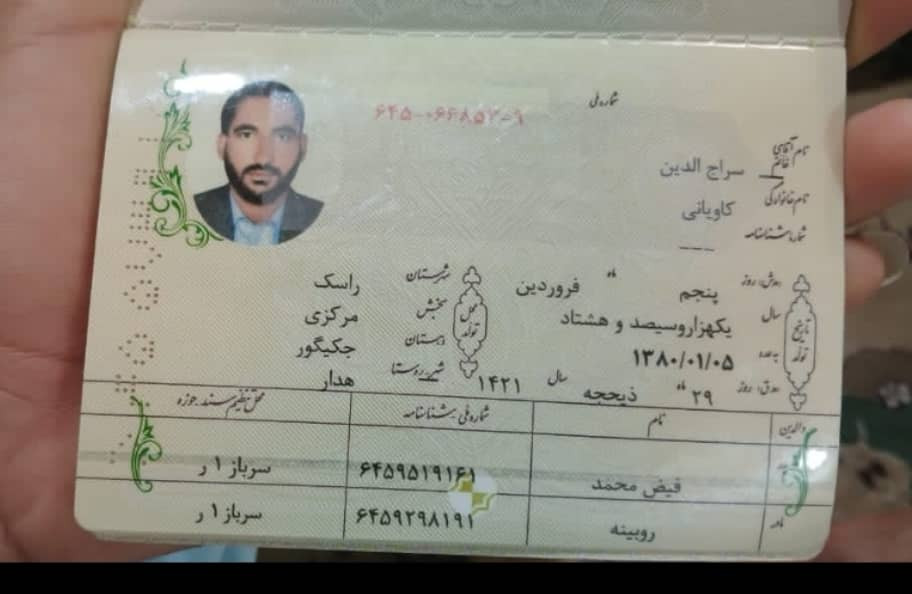 شماره ملی
۶۴۵-۰۶۶۸۵۲-۹
نام آقای
خانم
سراج الدین
نام خانوادگی
کاویانی
شماره شناسنامه
---
روز
پنجم
ماه
فروردین
سال
یکهزاروسیصد و هشتاد
به عدد
۱۳۸۰/۰۱/۰۵
روز
۲۹
ماه
ذیحجه
سال
۱۴۲۱
تاریخ تولد
محل تولد
شهرستان
راسک
بخش
مرکزی
دهستان
جکیگور
شهر - روستا
هدار
والدین
نام
شماره ملی - شناسنامه
محل تنظیم سند - حوزه
پدر
فیض محمد
۶۴۵۹۵۱۹۱۶۱
سرباز ۱ ر
مادر
روبینه
۶۴۵۹۲۹۸۱۹۱
سرباز ۱ ر